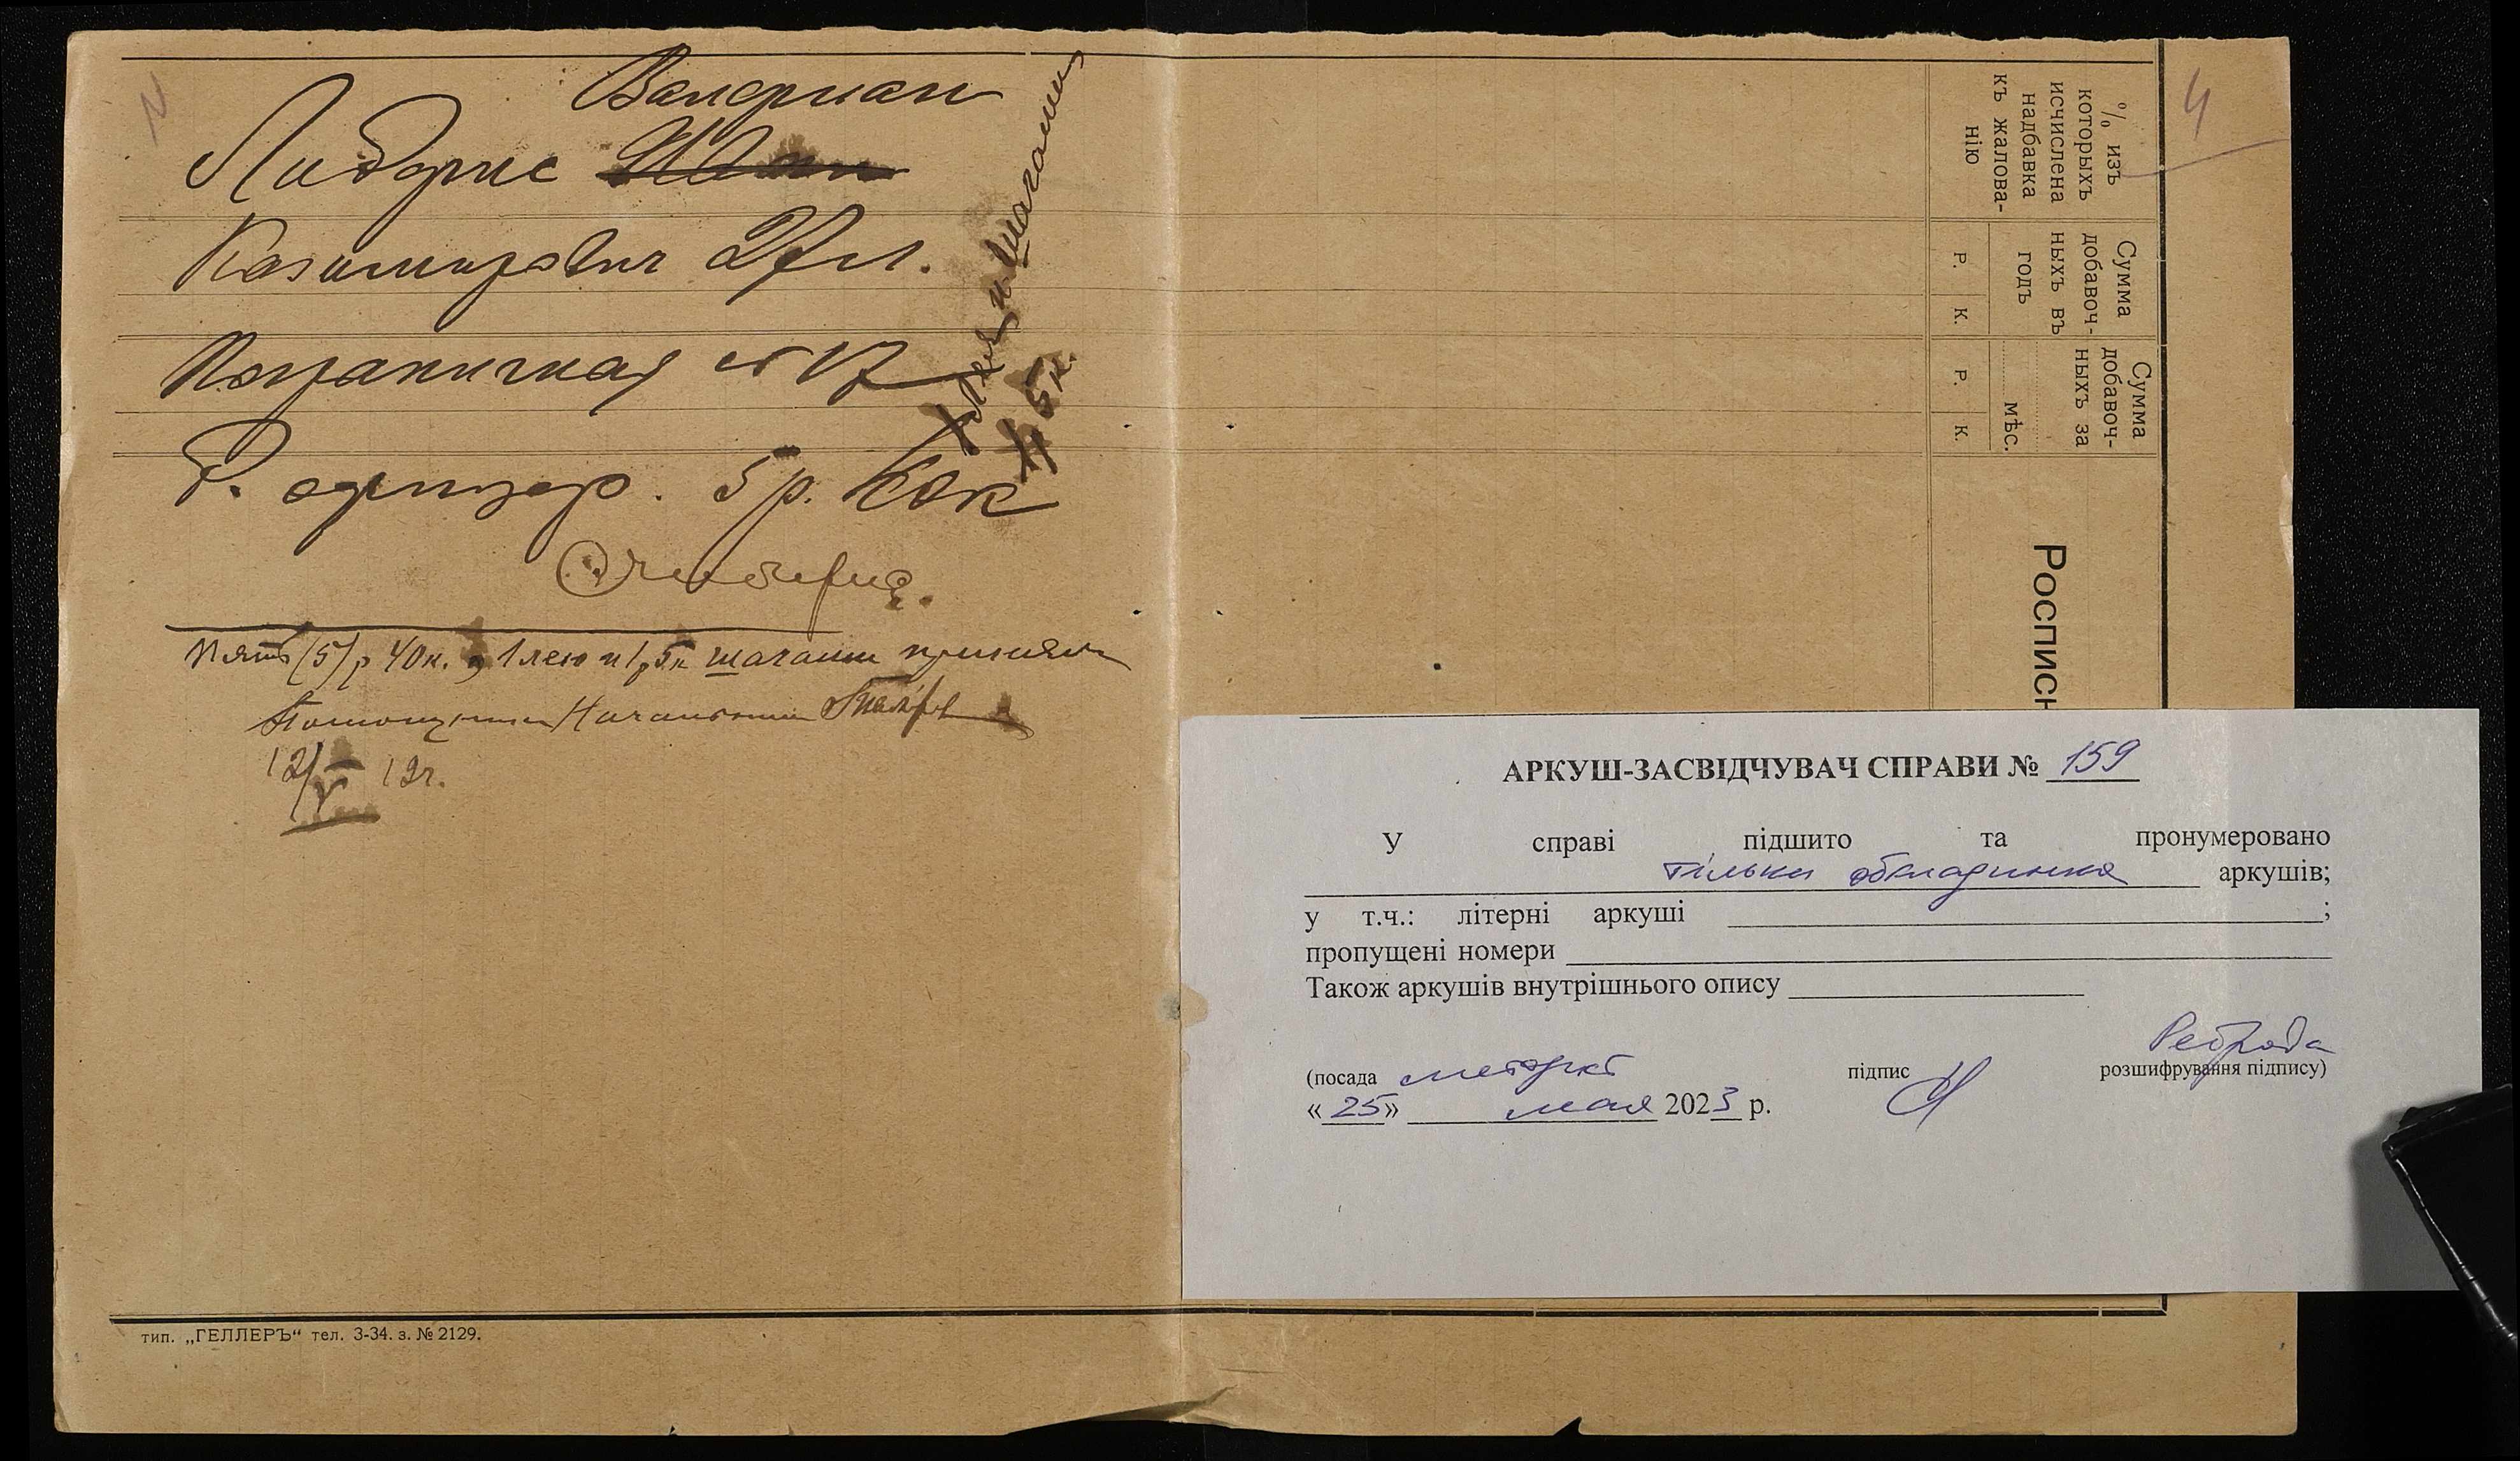 Валериан
Лидерис
Казимирович 27 л.
Пограничная № 17
Р. 5 р. 40 к
и шагами
5 к.
Пять (5) р 40 к. 1 лею и 1 р 5 к шагами принял
Помощник Начальника
12/V 12 г.
тип. „ГЕЛЛЕРЪ“ тел. 3-34. з. № 2129.
4
% изъ
которыхъ
исчислена
надбавка
къ жалова-
нію
Сумма
добавоч-
ныхъ въ
годъ
Р. К.
Сумма
добавоч-
ныхъ за
мѣс.
Р. К.
Росписк
АРКУШ-ЗАСВІДЧУВАЧ СПРАВИ № 159
У справі підшито та пронумеровано
тільки обкладинка аркушів;
у т.ч.: літерні аркуші ;
пропущені номери
Також аркушів внутрішнього опису
Реброва
(посада підпис розшифрування підпису)
«25» мая 2023 р.